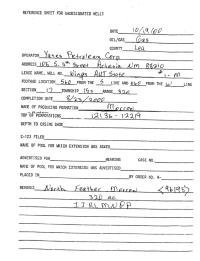 REFERENCE SHEET FOR UNDESIGNATED WELLS
DATE 10/19/00
OIL/GAS Gas
COUNTY Lea
OPERATOR Yates Petroleum Corp
ADDRESS 105 S. 4th Street Artesia NM 88210
LEASE NAME, WELL NO. AUT State
FOOTAGE LOCATION 560 FROM THE S LINE AND 660 FROM THE W LINE
SECTION 17 TOWNSHIP 15S RANGE 32E
COMPLETION DATE 8/23/2000
NAME OF PRODUCING FORMATION Morrow
TOP OF PERFORATIONS 12136 - 12219
DEPTH TO CASING SHOE
C-123 FILED
NAME OF POOL FOR WHICH EXTENSION WAS ASKED
ADVERTISED FOR HEARING CASE NO.
NAME OF POOL FOR WHICH EXTENSION WAS ADVERTISED
PLACED IN BY ORDER NO. R-
REMARKS North Feather Morrow (96195)
320 ac